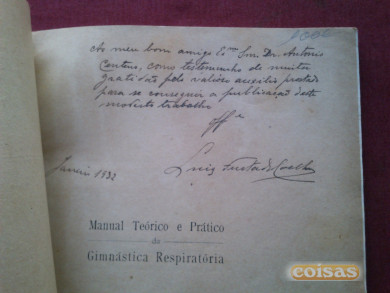 1000
Ao meu bom amigo Exmo Snr. Dr. Antonio
Centeno, como testemunho de muita
gratidão pelo valioso auxilio prestado
para se conseguir a publicação deste
modesto trabalho
offe
Janeiro 1932
Luiz Furtado Coelho
Manual Teórico e Prático
de
Gimnástica Respiratória
coisas